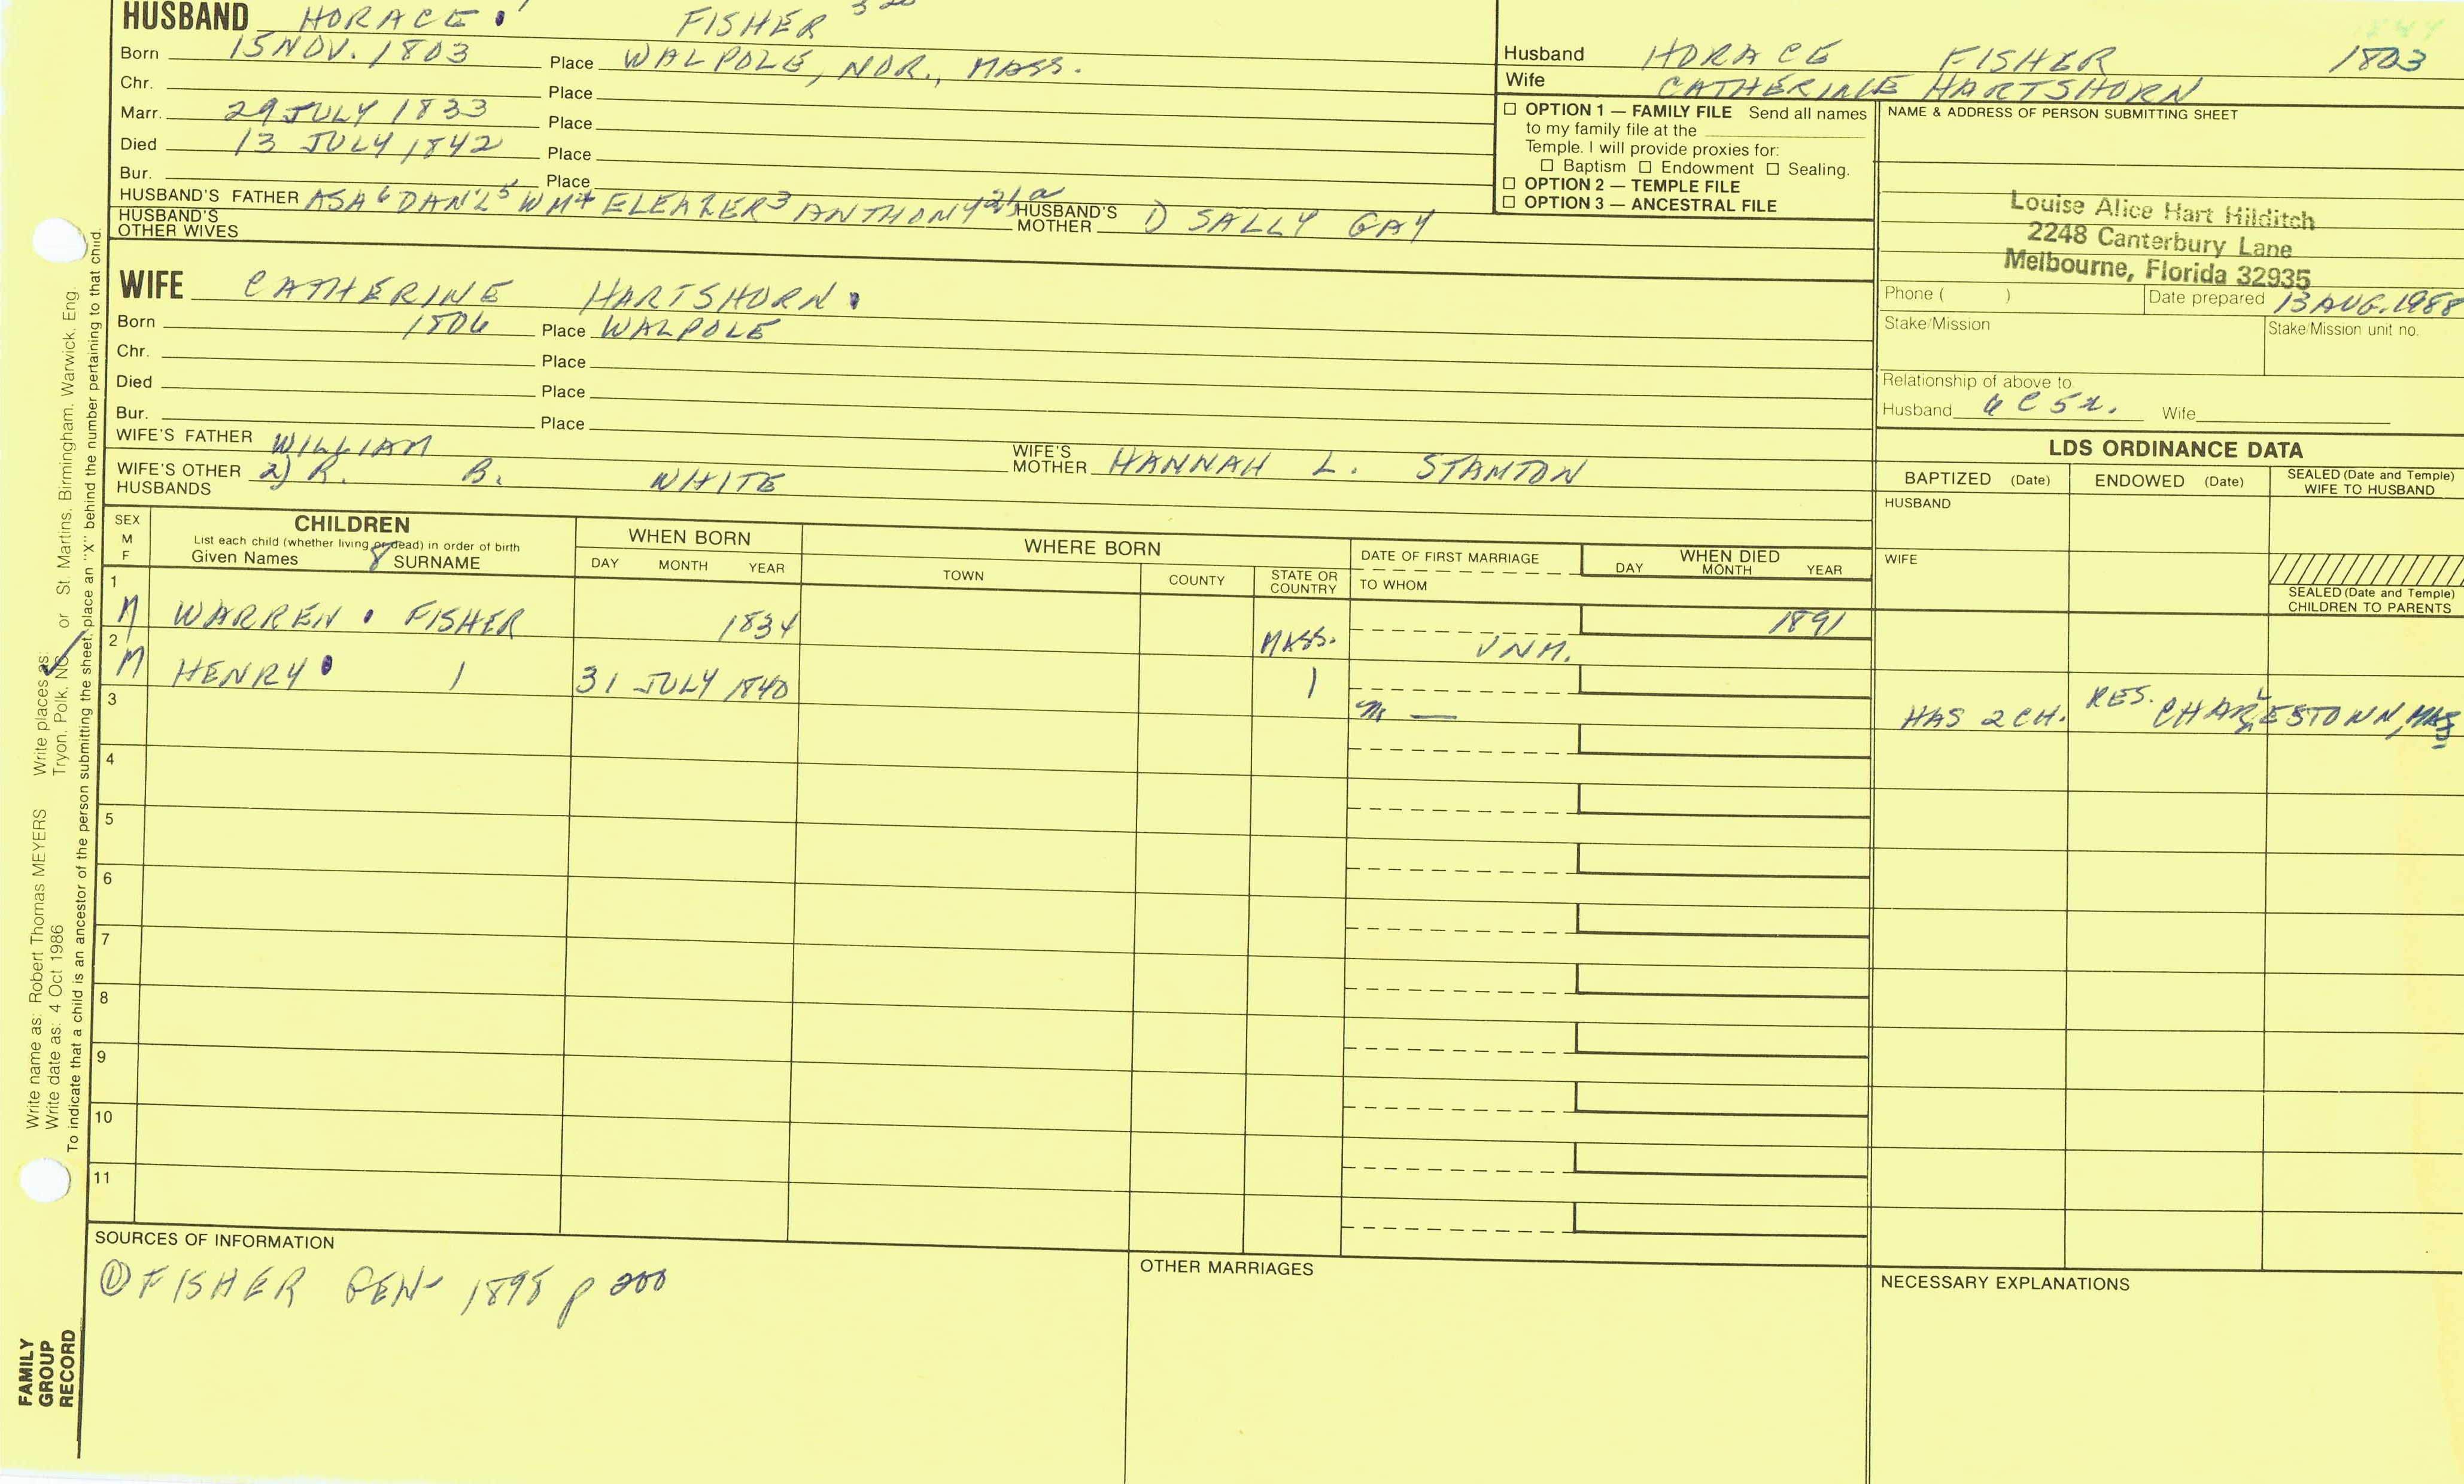 HUSBAND HORACE FISHER
Born 15 NOV. 1803 Place WALPOLE, NOR., MASS.
Chr. Place
Marr. 29 JULY 1833 Place
Died 13 JULY 1842 Place
Bur. Place
HUSBAND'S FATHER ASA 6 DAN'L 5 WM 4 ELEAZER 3 ANTHONY HUSBAND'S MOTHER 1) SALLY GAY
HUSBAND'S OTHER WIVES
Husband HORACE FISHER 1803
Wife CATHERINE HARTSHORN
☐ OPTION 1 — FAMILY FILE Send all names
to my family file at the
Temple. I will provide proxies for:
☐ Baptism ☐ Endowment ☐ Sealing.
☐ OPTION 2 — TEMPLE FILE
☐ OPTION 3 — ANCESTRAL FILE
NAME & ADDRESS OF PERSON SUBMITTING SHEET
Louise Alice Hart Hilditch
2248 Canterbury Lane
Melbourne, Florida 32935
Phone ( ) Date prepared 13 AUG. 1988
Stake/Mission Stake/Mission unit no.
Relationship of above to
Husband 6 C 5 R. Wife
WIFE CATHERINE HARTSHORN
Born 1806 Place WALPOLE
Chr. Place
Died Place
Bur. Place
WIFE'S FATHER WILLIAM WIFE'S MOTHER HANNAH L. STAMTON
WIFE'S OTHER HUSBANDS 2) R. B. WHITE
LDS ORDINANCE DATA
BAPTIZED (Date) ENDOWED (Date) SEALED (Date and Temple) WIFE TO HUSBAND
HUSBAND
WIFE
SEALED (Date and Temple) CHILDREN TO PARENTS
SEX M F
CHILDREN
List each child (whether living or dead) in order of birth
Given Names 8 SURNAME
WHEN BORN
DAY MONTH YEAR
WHERE BORN
TOWN COUNTY STATE OR COUNTRY
DATE OF FIRST MARRIAGE
TO WHOM
WHEN DIED
DAY MONTH YEAR
1 M WARREN FISHER 1834 MASS. UNM. 1891
2 M HENRY 1 31 JULY 1840 1 m — HAS 2 CH. RES. CHARLESTOWN, MAS
3
4
5
6
7
8
9
10
11
SOURCES OF INFORMATION
① FISHER GEN 1898 p 200
OTHER MARRIAGES
NECESSARY EXPLANATIONS
Write name as: Robert Thomas MEYERS Write places as: or St. Martins, Birmingham, Warwick, Eng.
Write date as: 4 Oct 1986 Tryon, Polk, NC
To indicate that a child is an ancestor of the person submitting the sheet, place an "X" behind the number pertaining to that child.
FAMILY
GROUP
RECORD